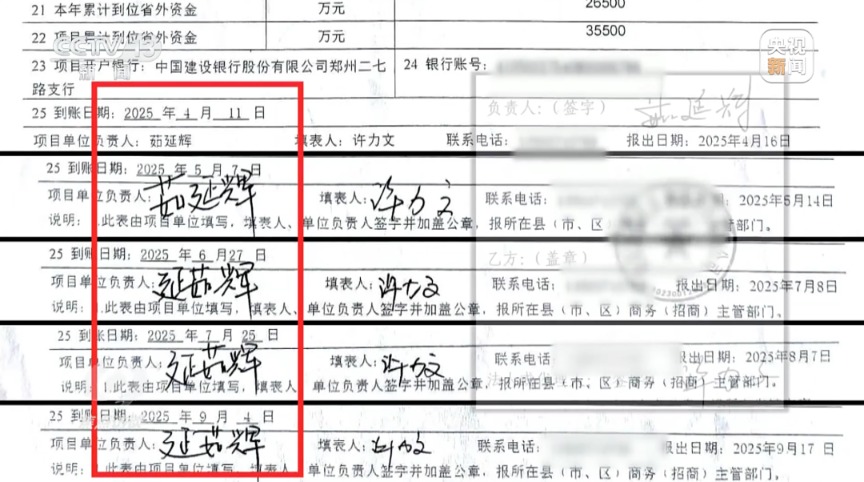 21 本年累计到位省外资金 万元 26500
22 项目累计到位省外资金 万元 35500
CCTV 13 新闻
央视新闻
23 项目开户银行：中国建设银行股份有限公司郑州二七路支行 24 银行账号：
25 到账日期：2025 年 4 月 11 日
负责人：（签字） 茹延辉
项目单位负责人：茹延辉 填表人：许力文 联系电话： 报出日期：2025年4月16日
25 到账日期：2025 年 5 月 7 日
项目单位负责人：茹延辉 填表人：许力文 联系电话： 2025年5月14日
说明：1.此表由项目单位填写，填表人、单位负责人签字并加盖公章，报所在县（市、区） 主管部门。
25 到账日期：2025 年 6 月 27 日
乙方：（盖章）
项目单位负责人：延茹辉 填表人：许力文 联系电话： 报出日期：2025年7月8日
说明：1.此表由项目单位填写，填表人、单位负责人签字并加盖公章，报所在县（市、区）商务（招商）主管部门。
25 到账日期：2025 年 7 月 25 日
项目单位负责人：延茹辉 填表人：许力文 联系电话： 报出日期：2025年8月7日
说明：1.此表由项目单位填写，填表人、单位负责人签字并加盖公章，报所在县（市、区）商务（招商）主管部门。
25 到账日期：2025 年 9 月 4 日
项目单位负责人：延茹辉 填表人： 联系电话： 报出日期：2025年9月17日
说明：1.此表由项目单位填写，填表人、单位负责人签字并加盖公章，报所在县（市、区）商务（招商）主管部门。